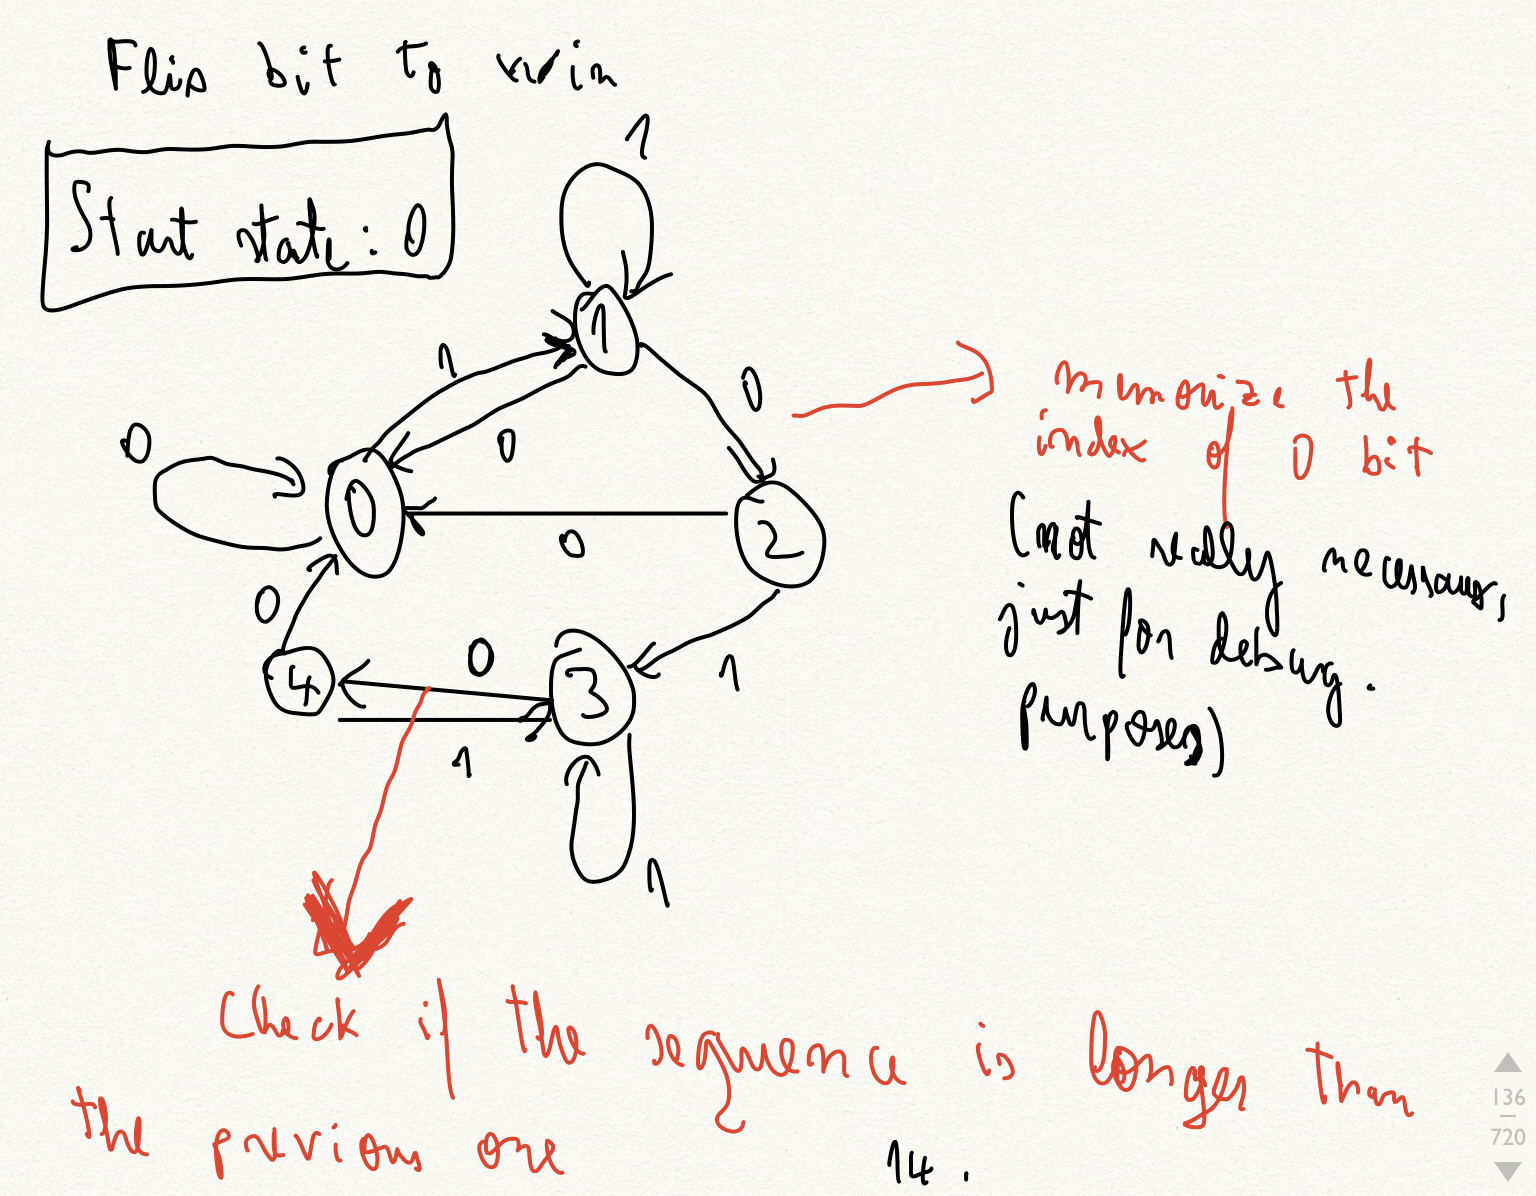 Flip bit to win
Start state: 0
1
1
1
0
0
0
0
0
2
0
0
4
0
3
1
1
1
memorize the
index of 0 bit
(not really necessary,
just for debug.
purposes)
Check if the sequence is longer than
the previous one
14.
136
720